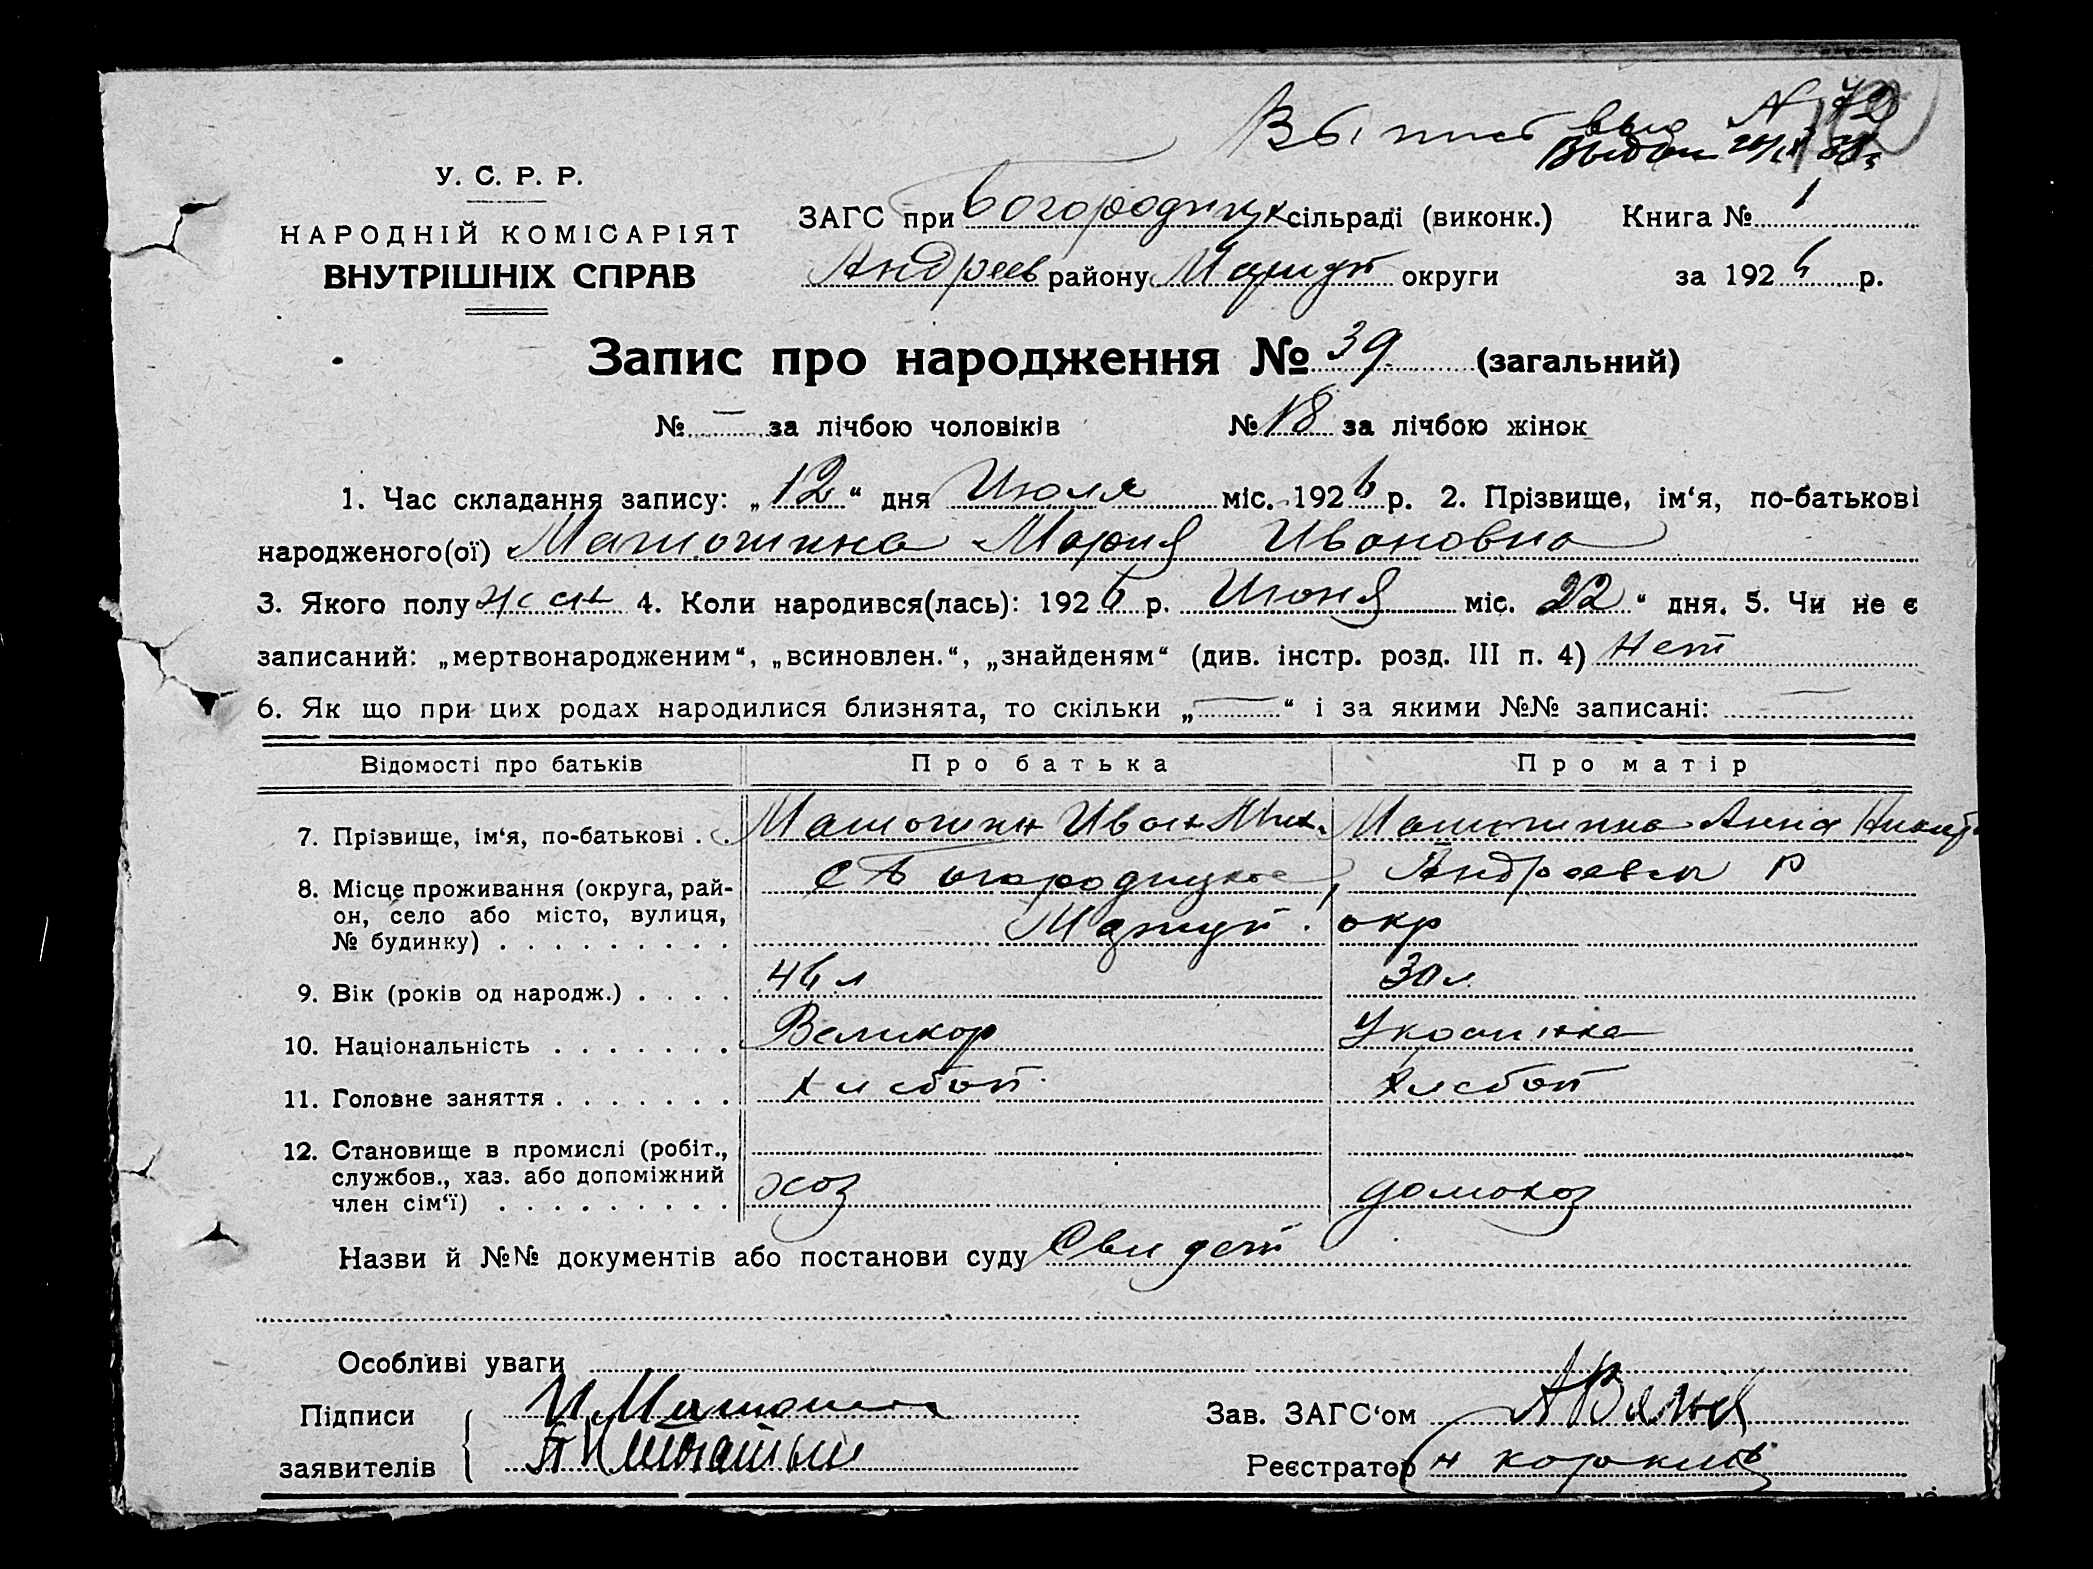 Выпись выд N 72
Выдан
У. С. Р. Р.
НАРОДНІЙ КОМІСАРІЯТ
ВНУТРІШНІХ СПРАВ
ЗАГС при Богородицк сільраді (виконк.) Книга № 1
Андреев району Мариуп округи за 1926 р.
Запис про народження № 39 (загальний)
№ — за лічбою чоловіків № 18 за лічбою жінок
1. Час складання запису: „12“ дня Июля міс. 1926 р. 2. Прізвище, ім‘я, по-батькові
народженого(ої) Матюшкина Мария Ивановна
3. Якого полу жен 4. Коли народився(лась): 1926 р. Июня міс. 22“ дня. 5. Чи не є
записаний: „мертвонародженим“, „всиновлен.“, „знайденям“ (див. інстр. розд. III п. 4) Нет
6. Як що при цих родах народилися близнята, то скільки „—“ і за якими №№ записані: —
Відомості про батьків Про батька Про матір
7. Прізвище, ім‘я, по-батькові . . Матюшкин Иван Мих. Матюшкина Анна Никит
8. Місце проживання (округа, рай- с Богородицкое, Андреевск Р
он, село або місто, вулиця,
№ будинку) . . . . . . . . . Мариуп. окр
9. Вік (років од народж.) . . . . 46 л 30 л
10. Національність . . . . . . . Великор Украинка
11. Головне заняття . . . . . . . Хлебоп Хлебоп
12. Становище в промислі (робіт.,
службов., хаз. або допоміжний
член сім‘ї) . . . . . . . . . хоз домохоз
Назви й №№ документів або постанови суду Свидет
Особливі уваги
Підписи И Матюшкин Зав. ЗАГС‘ом
заявителів Реєстратор